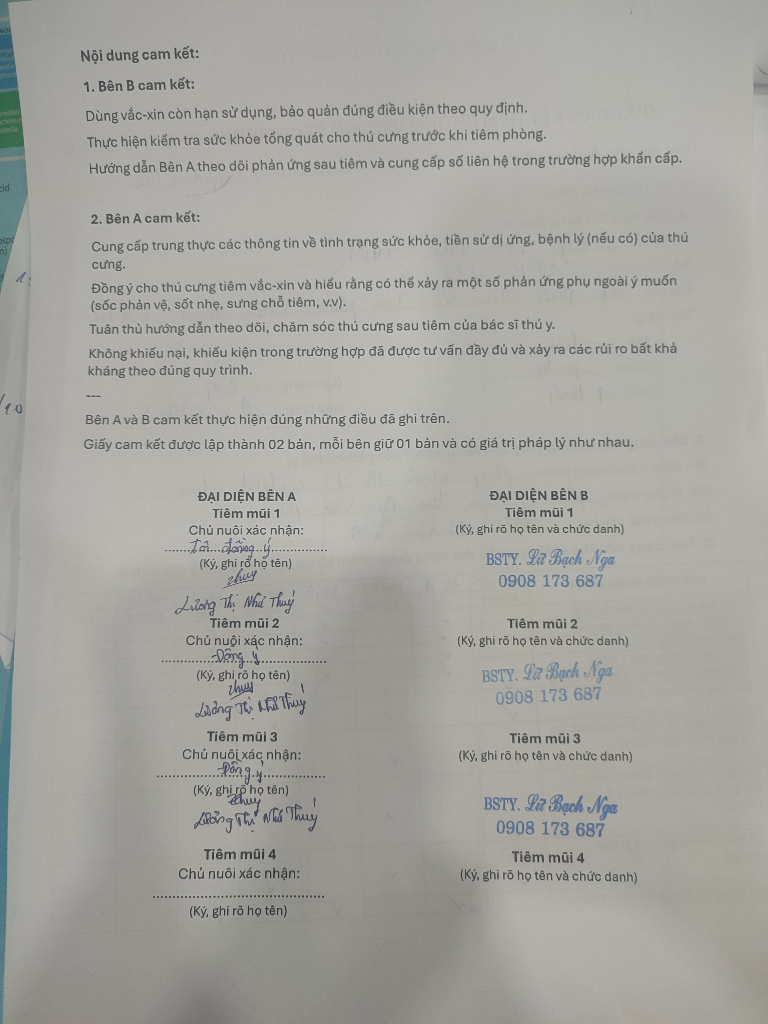 Nội dung cam kết:
1. Bên B cam kết:
Dùng vắc-xin còn hạn sử dụng, bảo quản đúng điều kiện theo quy định.
Thực hiện kiểm tra sức khỏe tổng quát cho thú cưng trước khi tiêm phòng.
Hướng dẫn Bên A theo dõi phản ứng sau tiêm và cung cấp số liên hệ trong trường hợp khẩn cấp.
2. Bên A cam kết:
Cung cấp trung thực các thông tin về tình trạng sức khỏe, tiền sử dị ứng, bệnh lý (nếu có) của thú
cưng.
Đồng ý cho thú cưng tiêm vắc-xin và hiểu rằng có thể xảy ra một số phản ứng phụ ngoài ý muốn
(sốc phản vệ, sốt nhẹ, sưng chỗ tiêm, v.v).
Tuân thủ hướng dẫn theo dõi, chăm sóc thú cưng sau tiêm của bác sĩ thú y.
Không khiếu nại, khiếu kiện trong trường hợp đã được tư vấn đầy đủ và xảy ra các rủi ro bất khả
kháng theo đúng quy trình.
---
Bên A và B cam kết thực hiện đúng những điều đã ghi trên.
Giấy cam kết được lập thành 02 bản, mỗi bên giữ 01 bản và có giá trị pháp lý như nhau.
ĐẠI DIỆN BÊN A
Tiêm mũi 1
Chủ nuôi xác nhận:
Tôi đồng ý
(Ký, ghi rõ họ tên)
Thuý
Lương Thị Như Thuý
Tiêm mũi 2
Chủ nuôi xác nhận:
Đồng ý
(Ký, ghi rõ họ tên)
Thuý
Lương Thị Như Thuý
Tiêm mũi 3
Chủ nuôi xác nhận:
Đồng ý
(Ký, ghi rõ họ tên)
Thuý
Lương Thị Như Thuý
Tiêm mũi 4
Chủ nuôi xác nhận:
(Ký, ghi rõ họ tên)
ĐẠI DIỆN BÊN B
Tiêm mũi 1
(Ký, ghi rõ họ tên và chức danh)
BSTY. Lữ Bạch Nga
0908 173 687
Tiêm mũi 2
(Ký, ghi rõ họ tên và chức danh)
BSTY. Lữ Bạch Nga
0908 173 687
Tiêm mũi 3
(Ký, ghi rõ họ tên và chức danh)
BSTY. Lữ Bạch Nga
0908 173 687
Tiêm mũi 4
(Ký, ghi rõ họ tên và chức danh)